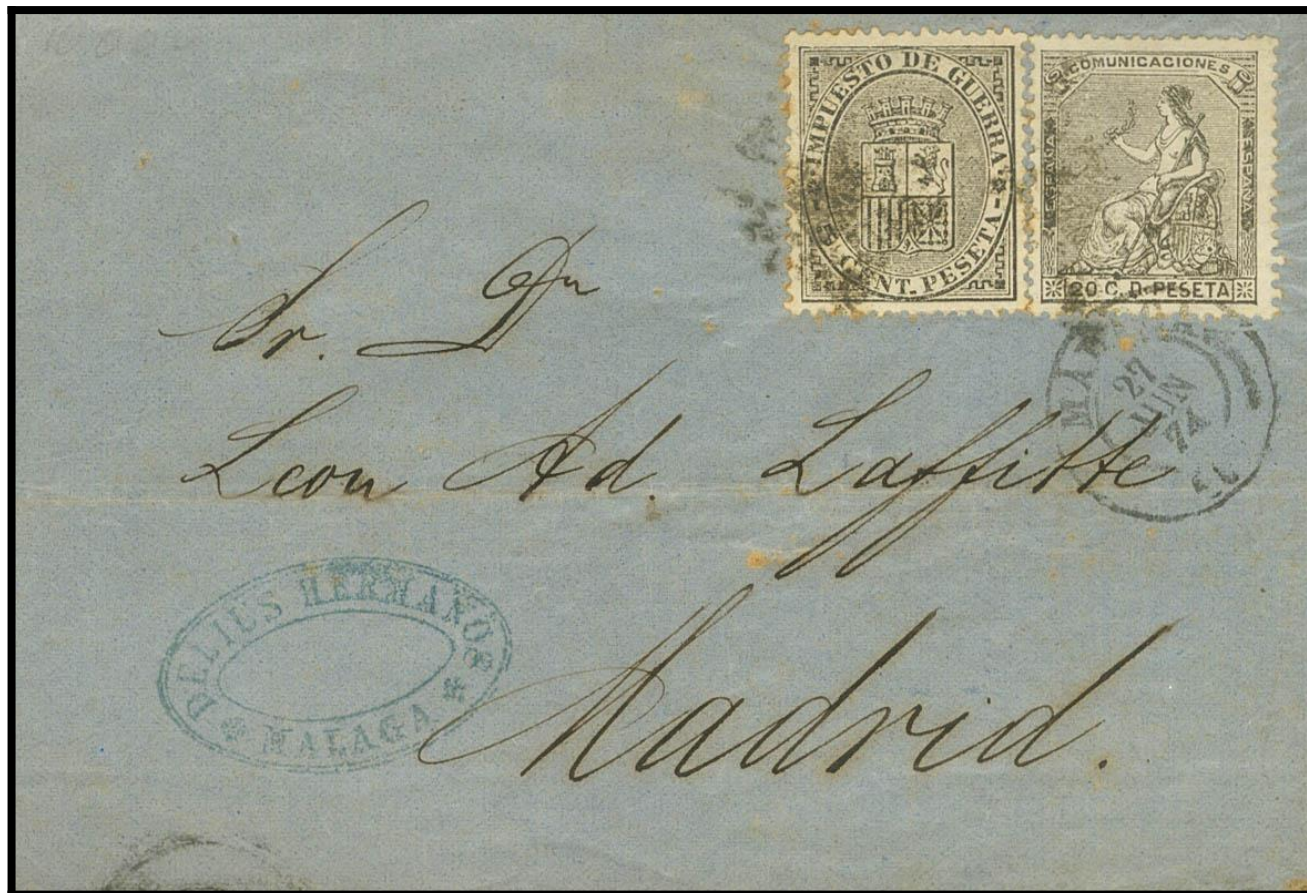 IMPUESTO DE GUERRA
5 CENT. PESETA
COMUNICACIONES
ESPAÑA
20 C. D. PESETA
27
JUN
74
Sr. Dn
Leon Ad. Laffitte
Madrid.
DELIUS HERMANOS
MALAGA